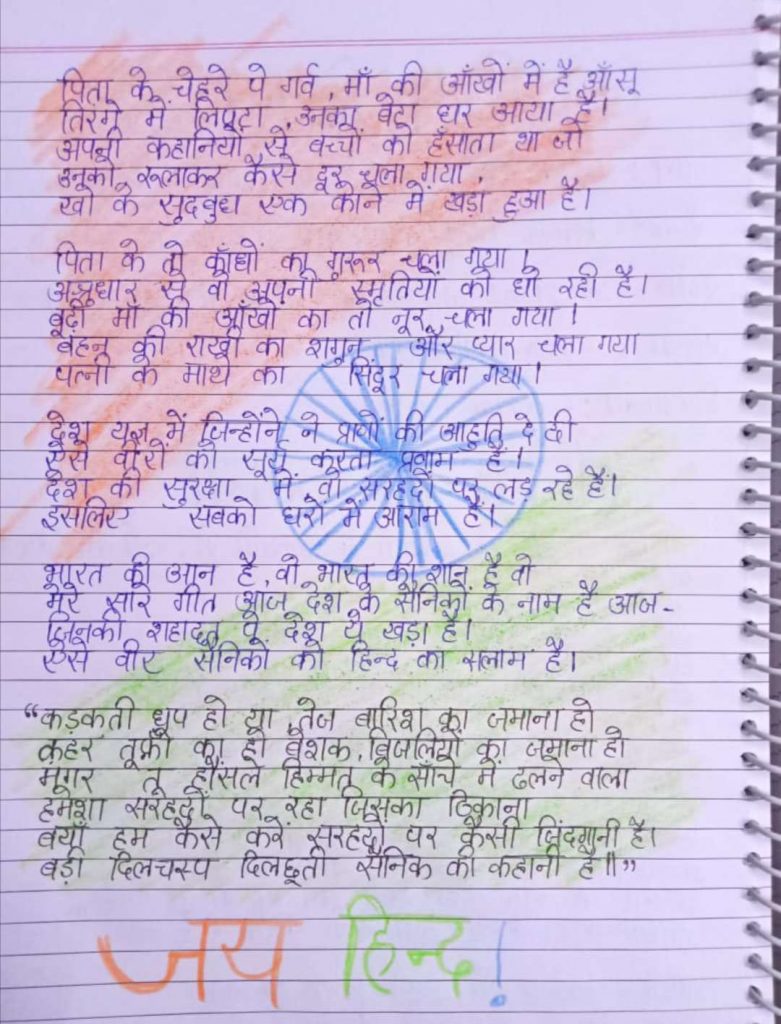 पिता के चेहरे पे गर्व, माँ की आँखों में है आँसू
तिरंगे में लिपटा, उनका बेटा घर आया है।
अपनी कहानियों से बच्चों को हँसाता था जो
उनको रूलाकर कैसे दूर चला गया,
खो के सुदबुध एक कोने में खड़ा हुआ है।
पिता के तो काँधों का गुरूर चला गया।
अश्रुधार से वो अपनी स्मृतियों को धो रही है।
बूढ़ी माँ की आँखों का तो नूर चला गया।
बहन की राखी का शगुन और प्यार चला गया
पत्नी के माथे का सिंदूर चला गया।
देश यज्ञ में जिन्होंने ने प्राणों की आहुति दे दी
ऐसे वीरों को सूर्य करता प्रणाम है।
देश की सुरक्षा में वो सरहदों पर लड़ रहे हैं।
इसलिए सबको घरों में आराम है।
भारत की आन है, वो भारत की शान है वो
मेरे सारे गीत आज देश के सैनिकों के नाम है आज-
जिनकी शहादत पे देश ये खड़ा है।
ऐसे वीर सैनिकों को हिन्द का सलाम है।
“कड़कती धूप हो या तेज बारिश का जमाना हो
कहर तूफाँ का हो बेशक, बिजलियों का जमाना हो
मगर तू हौंसले हिम्मत के साँचे में ढलने वाला
हमेशा सरहदों पर रहा जिसका ठिकाना
बयाँ हम कैसे करें सरहदों पर कैसी जिंदगानी है।
बड़ी दिलचस्प दिलछूती सैनिक की कहानी है॥”
जय हिन्द!